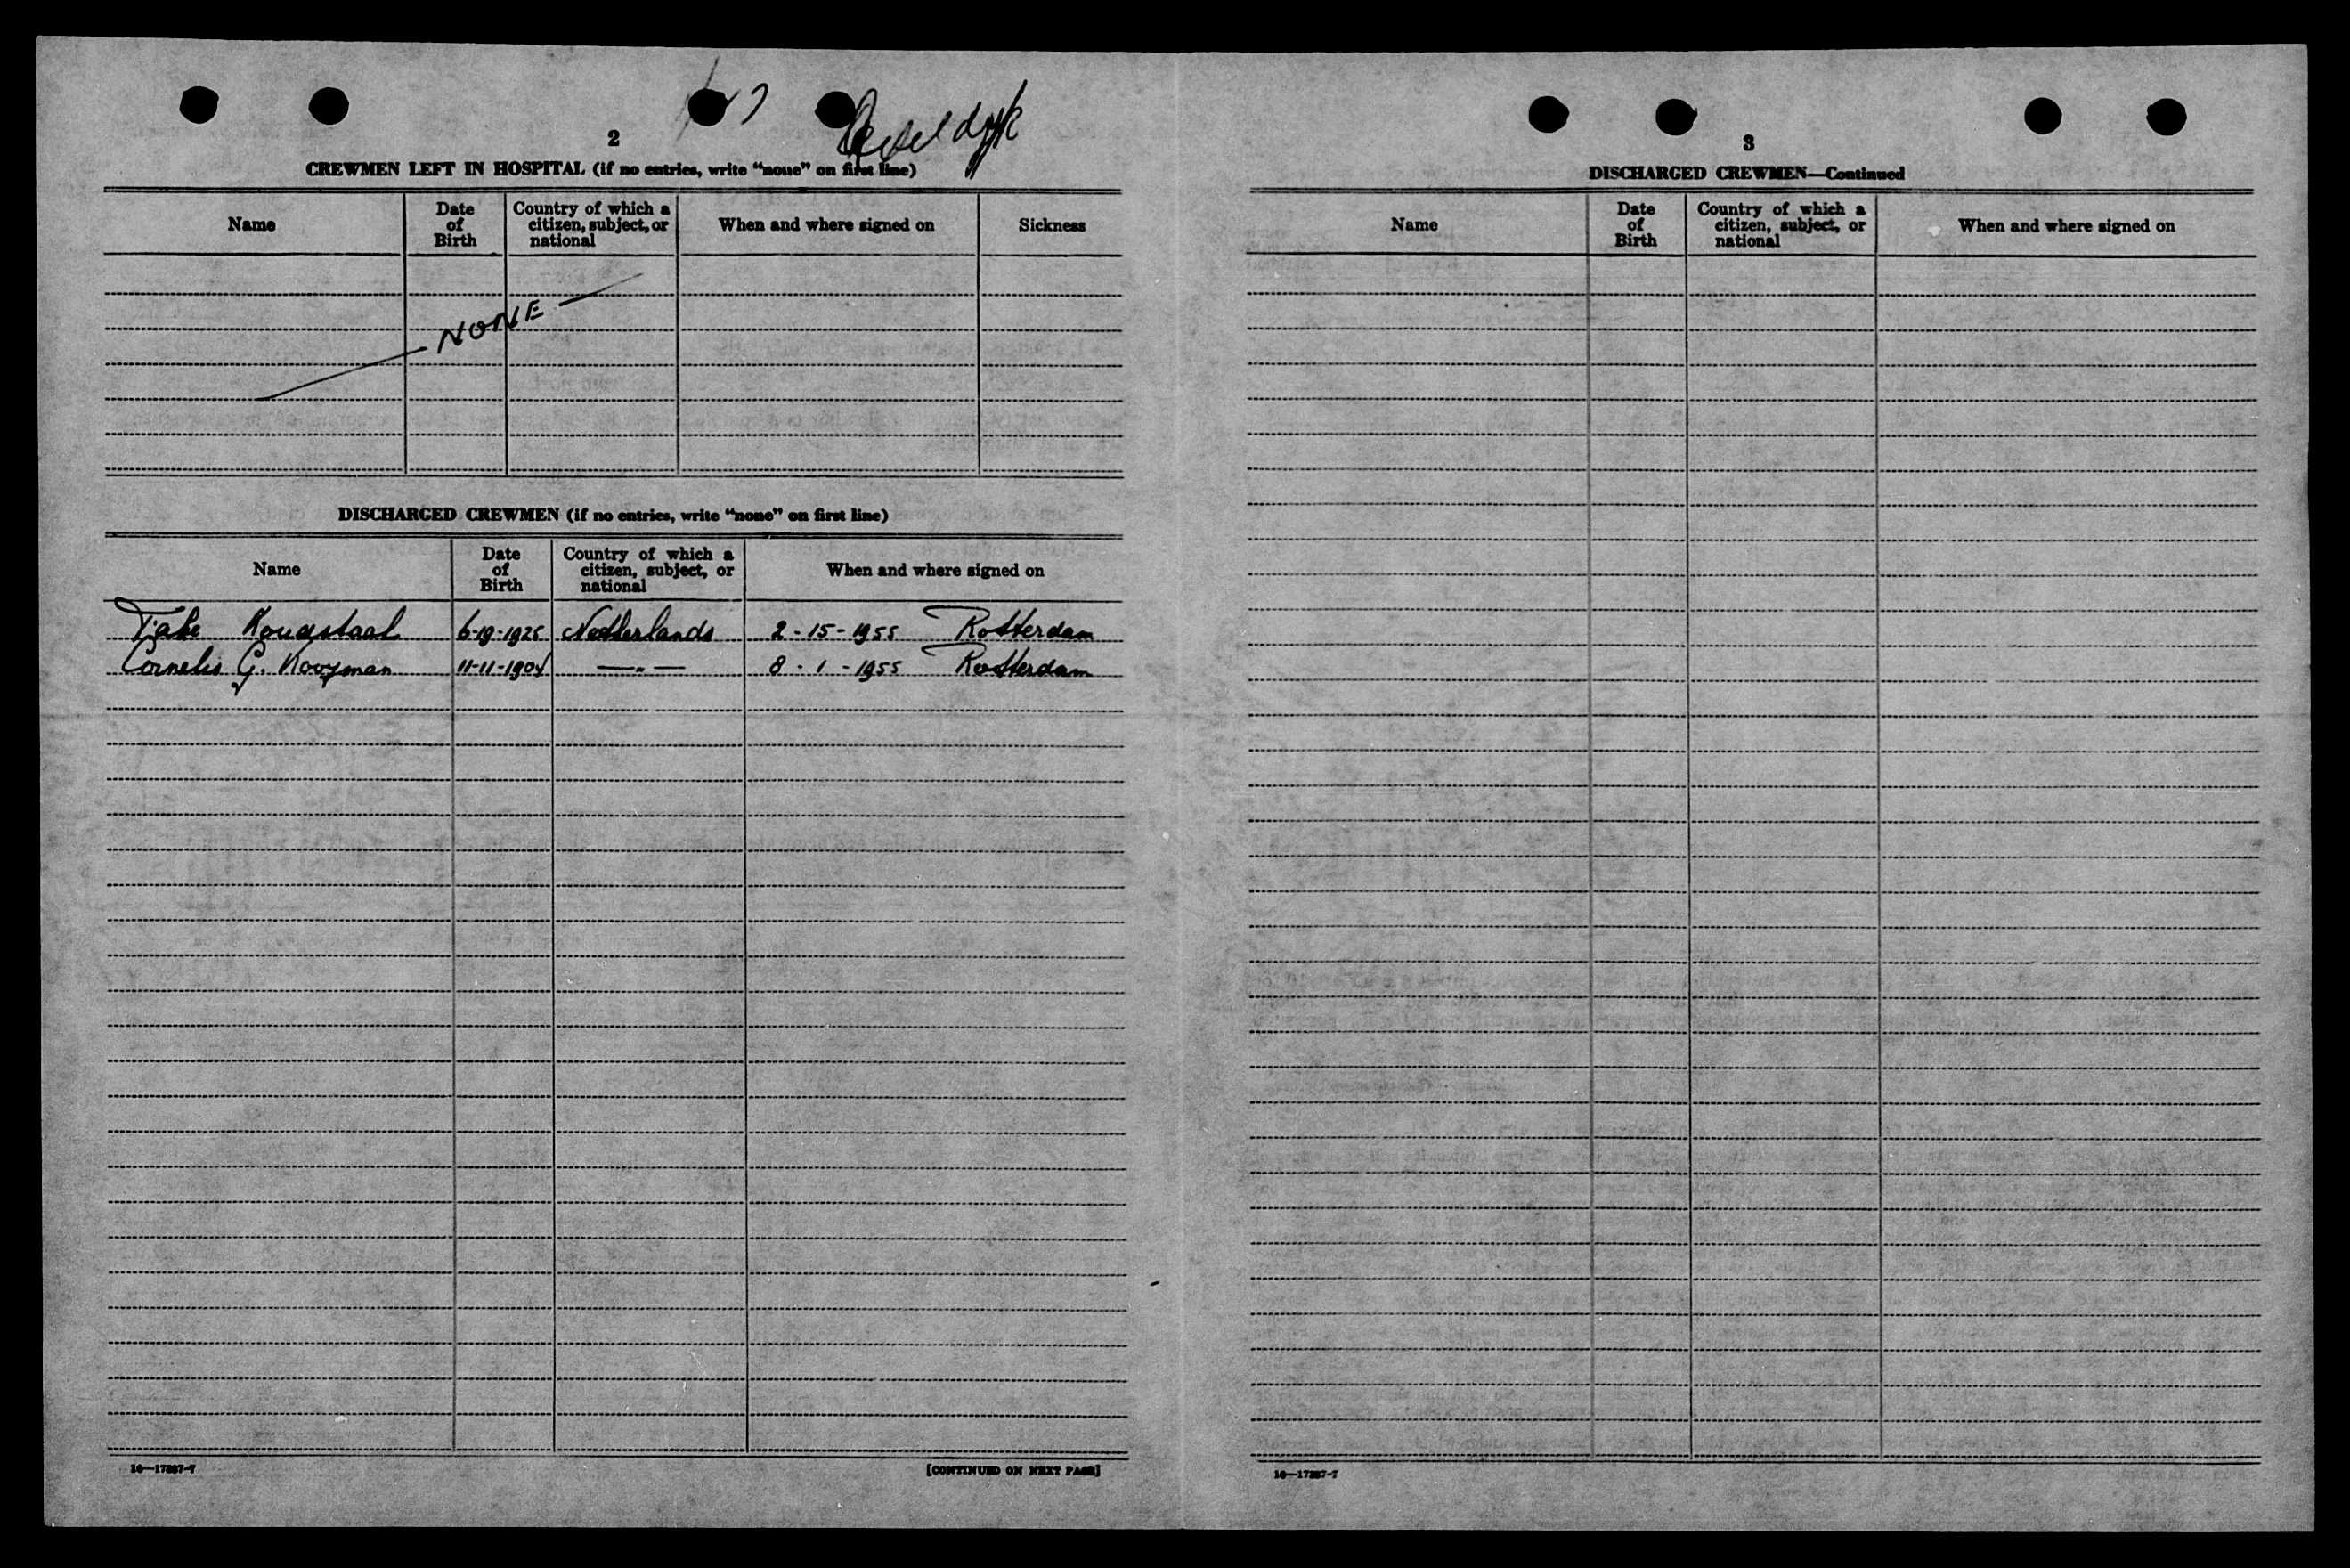 2
CREWMEN LEFT IN HOSPITAL (if no entries, write “none” on first line)
Name
Date of Birth
Country of which a citizen, subject, or national
When and where signed on
Sickness
NONE
DISCHARGED CREWMEN (if no entries, write “none” on first line)
Name
Date of Birth
Country of which a citizen, subject, or national
When and where signed on
Netherlands 2-15-1955 Rotterdam
Cornelis G. Kooyman 11-11-1904 —"— 8-1-1955 Rotterdam
[CONTINUED ON NEXT PAGE]
3
DISCHARGED CREWMEN—Continued
Name
Date of Birth
Country of which a citizen, subject, or national
When and where signed on